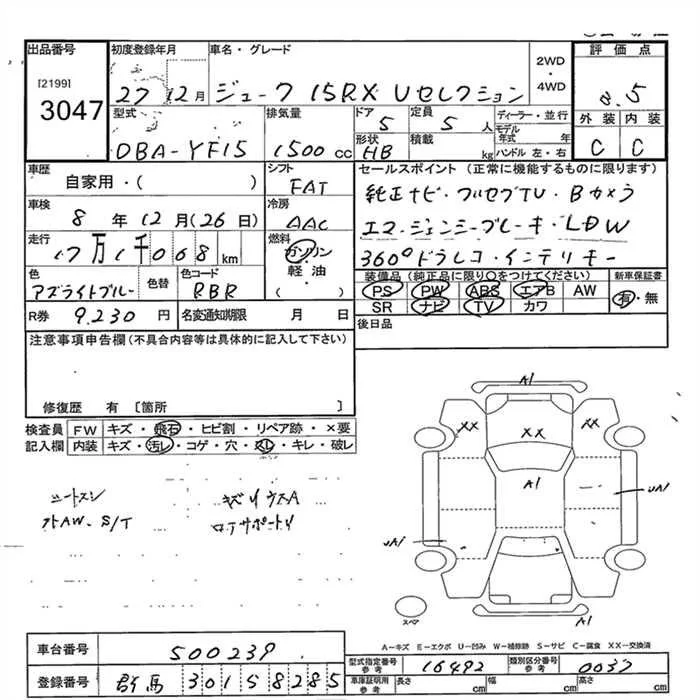 出品番号 初度登録年月 車名・グレード 2WD・4WD 評価点
[2199]
3047
27 12月 ジューク 15RX Vセレクション
5
型式 排気量 ドア 定員 ディーラー・並行 外装 内装
DBA-YF15 1500cc 5 5人 モデル年式 年 C C
形状 積載
HB kg ハンドル 左・右
車歴 シフト セールスポイント (正常に機能するものに限ります)
自家用・( ) FAT 純正ナビ・フルセグTV・Bカメラ
車検 冷房 エマージェンシーブレーキ・LDW
8年12月(26日) AAC 360°ドラレコ・インテリキー
走行 燃料
7万1千068km ガソリン・軽油・( )
装備品 (純正品に限り○をつけてください) 新車保証書
PS PW ABS エアB AW 有・無
SR ナビ TV カワ
色 色替 色コード
アズライトブルー RBR
R券 9,230円 名変通知期限 月 日
後日品
注意事項申告欄(不具合内容等は具体的に記入して下さい)
修復歴 有 〔箇所 〕
検査員記入欄 FW キズ・飛石・ヒビ割・リペア跡・×要
内装 キズ・汚レ・コゲ・穴・スレ・キレ・破レ
A1
XX XX XX
A1
UA1
UA1
A1
スペア
シートスレ
キズリウスA
ロアサポートリ
A-キズ E-エクボ U-凹み W-補修跡 S-サビ C-腐食 XX-交換済
車台番号 500239
型式指定番号 参考 16492 類別区分番号 参考 0037
登録番号 群馬 301 5 8285
車庫証明用 参考 長さ cm 幅 cm 高さ cm